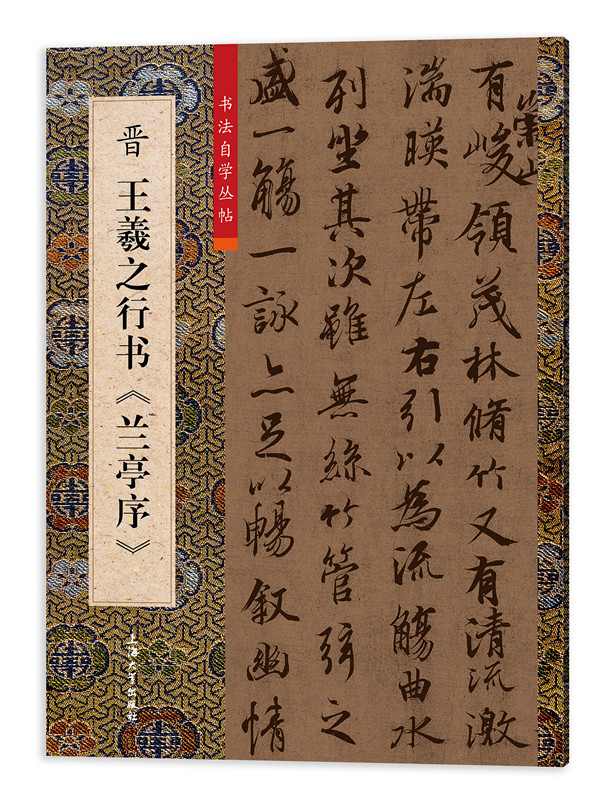 书法自学丛帖
晋 王羲之行书《兰亭序》
上海大学出版社
崇山
有峻領茂林脩竹又有清流激
湍暎帶左右引以為流觴曲水
列坐其次雖無絲竹管弦之
盛一觴一詠亦足以暢敘幽情